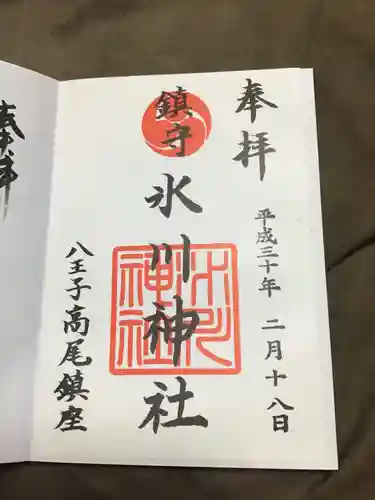 奉拝
平成三十年 二月十八日
鎮守
氷川神社
氷川神社
八王子高尾鎮座
奉拝